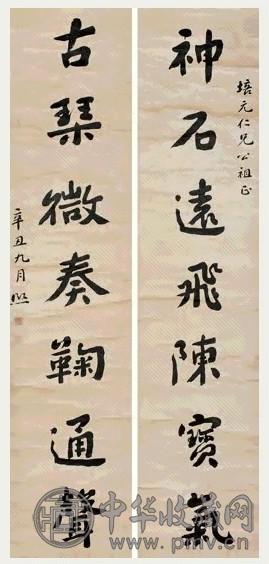 培元仁兄公祖正
神石遠飛陳寶氣
古琴微奏鞠通聲
辛丑九月
中华收藏网
www.pmv.cn